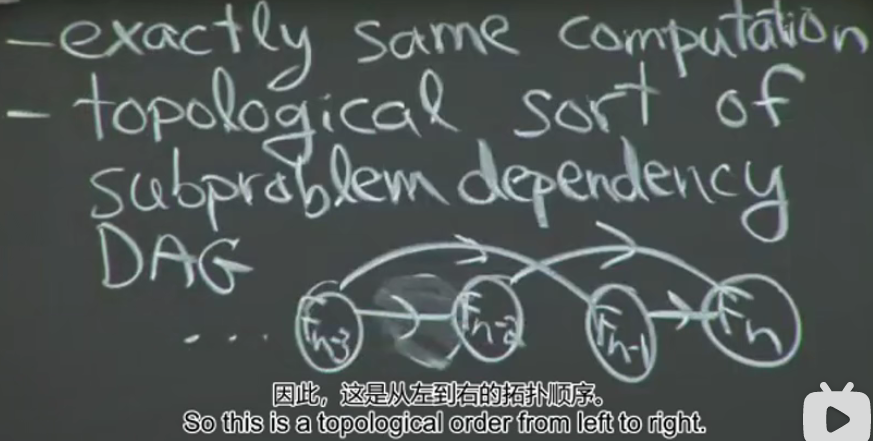 - exactly same computation
- topological sort of
subproblem dependency
DAG
... Fn-3 Fn-2 Fn-1 Fn
因此，这是从左到右的拓扑顺序。
So this is a topological order from left to right.